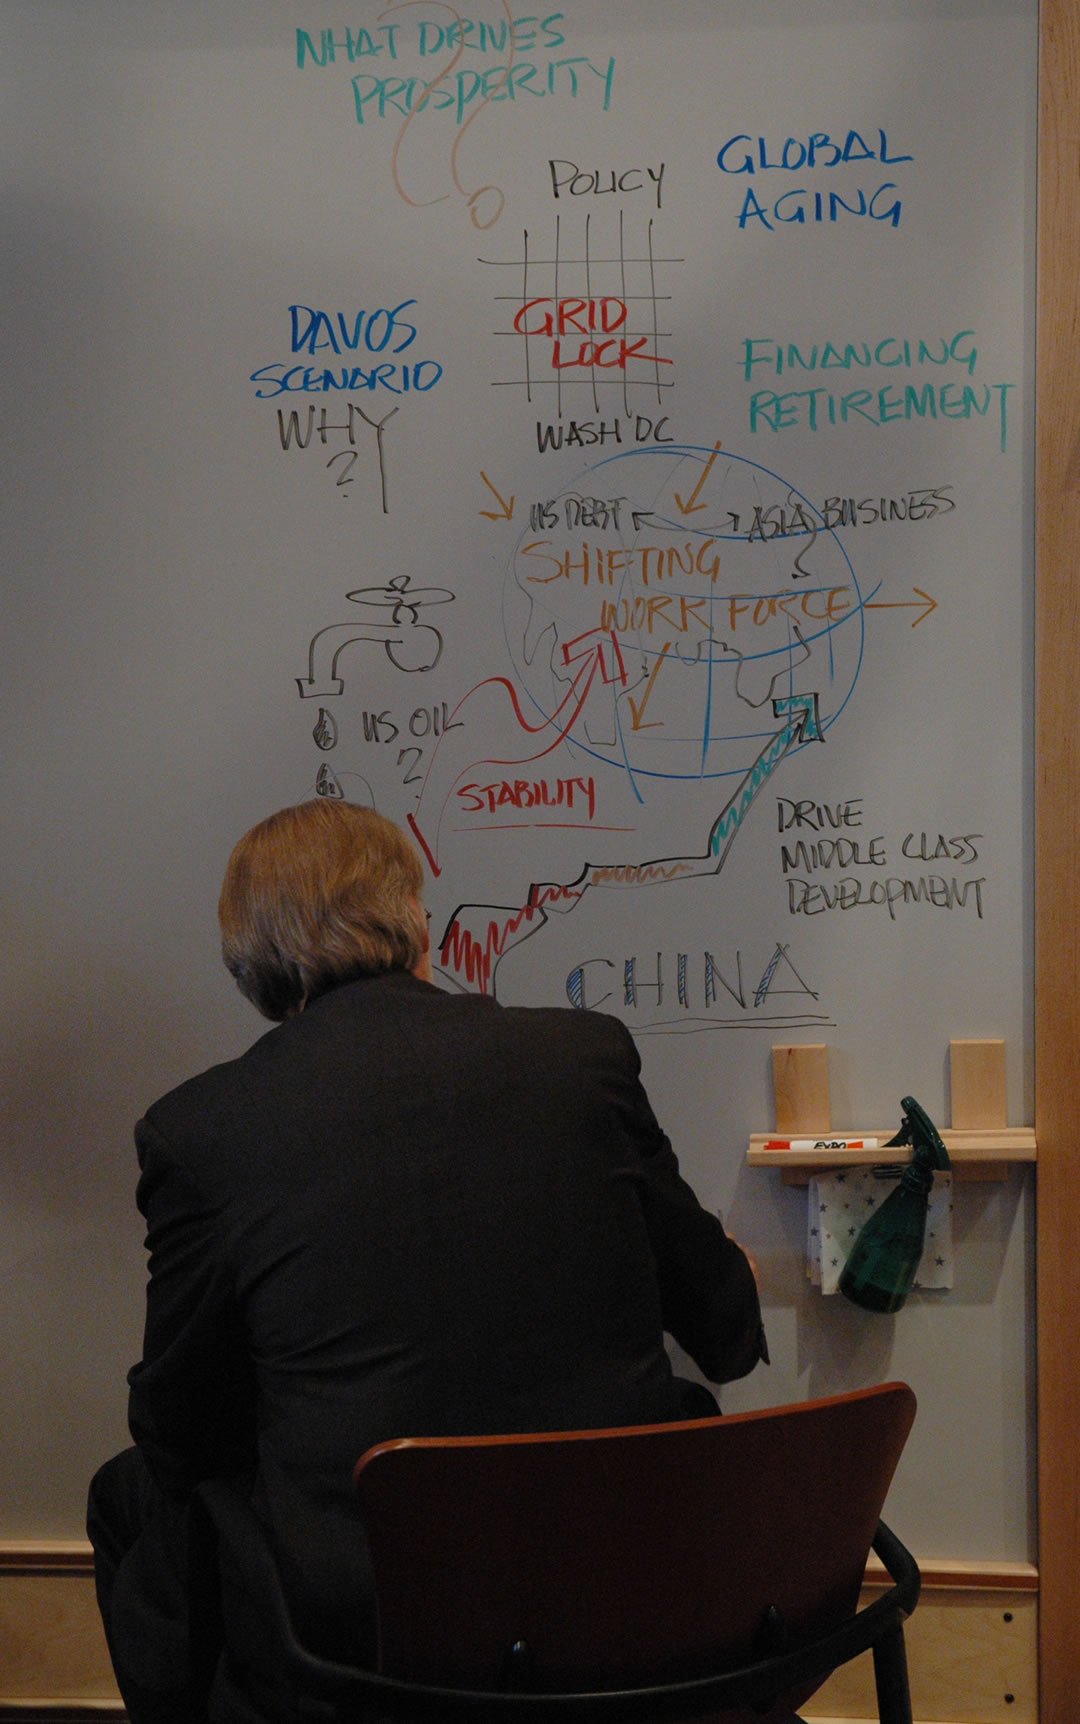 WHAT DRIVES
PROSPERITY
??
POLICY
GLOBAL
AGING
GRID
LOCK
WASH DC
DAVOS
SCENARIO
WHY
?
FINANCING
RETIREMENT
US DEBT
ASIA BUSINESS
SHIFTING
WORK FORCE
US OIL
?
STABILITY
DRIVE
MIDDLE CLASS
DEVELOPMENT
CHINA
EXPO